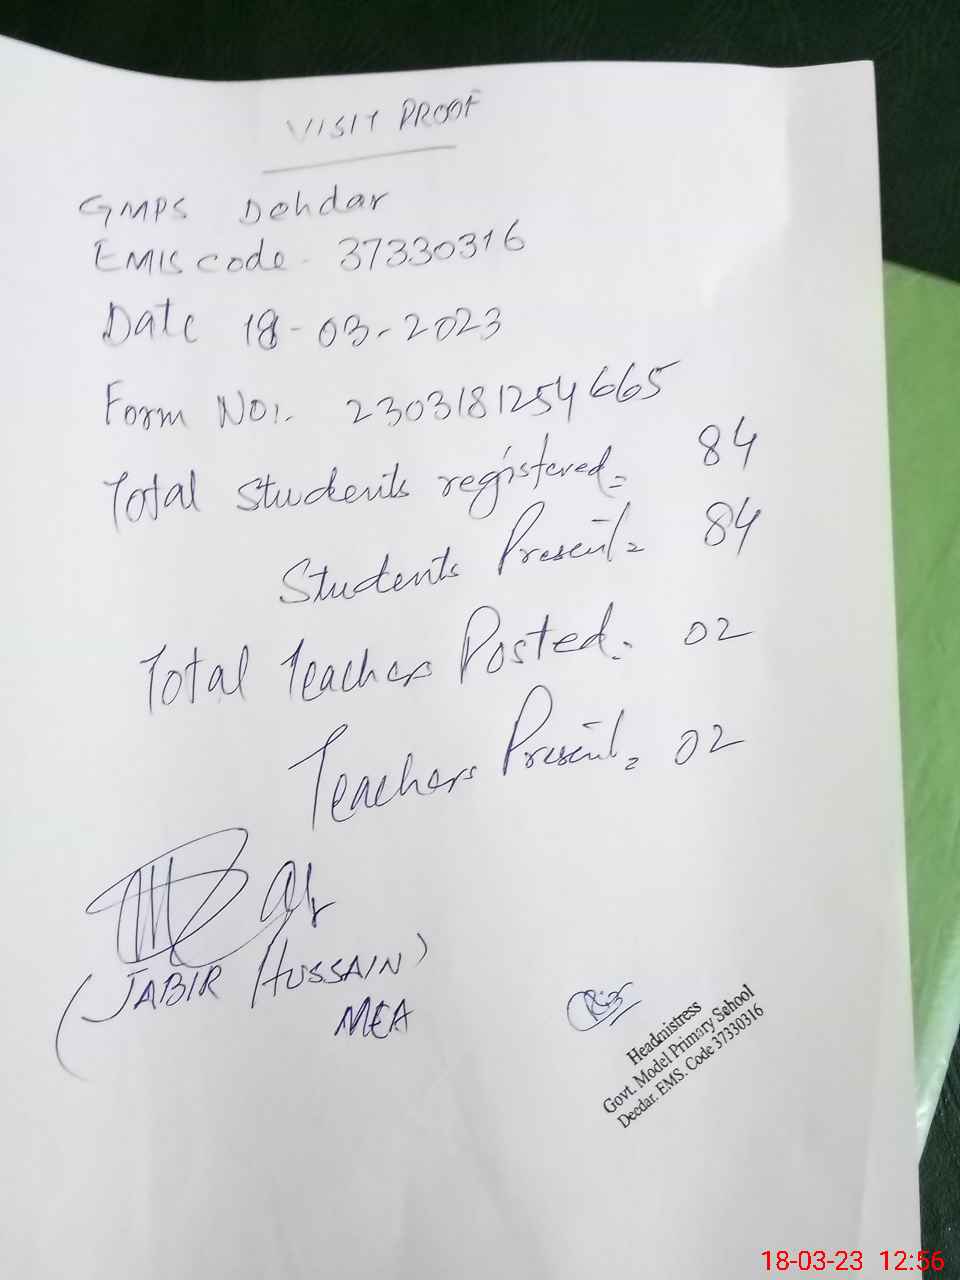 VISIT PROOF
GMPS Dehdar
EMIS code. 37330316
Date 18-03-2023
Form No:. 2303181254665
Total students registered = 84
Students Present = 84
Total Teachers Posted = 02
Teachers Present = 02
(JABIR HUSSAIN)
MEA
Headmistress
Govt. Model Primary School
Deedar. EMS. Code 37330316
18-03-23 12:56